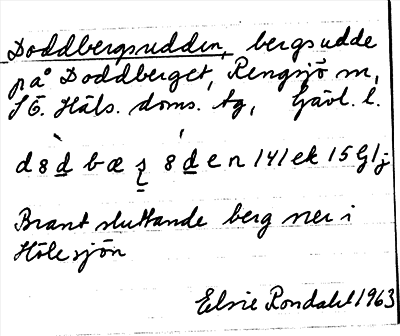 Doddbergsudden, bergsudde
på Doddberget, Rengsjö sn,
SÖ. Häls. doms. tg, Gävl. l.
Brant sluttande berg ner i
Hölesjön
Elsie Rondahl 1963